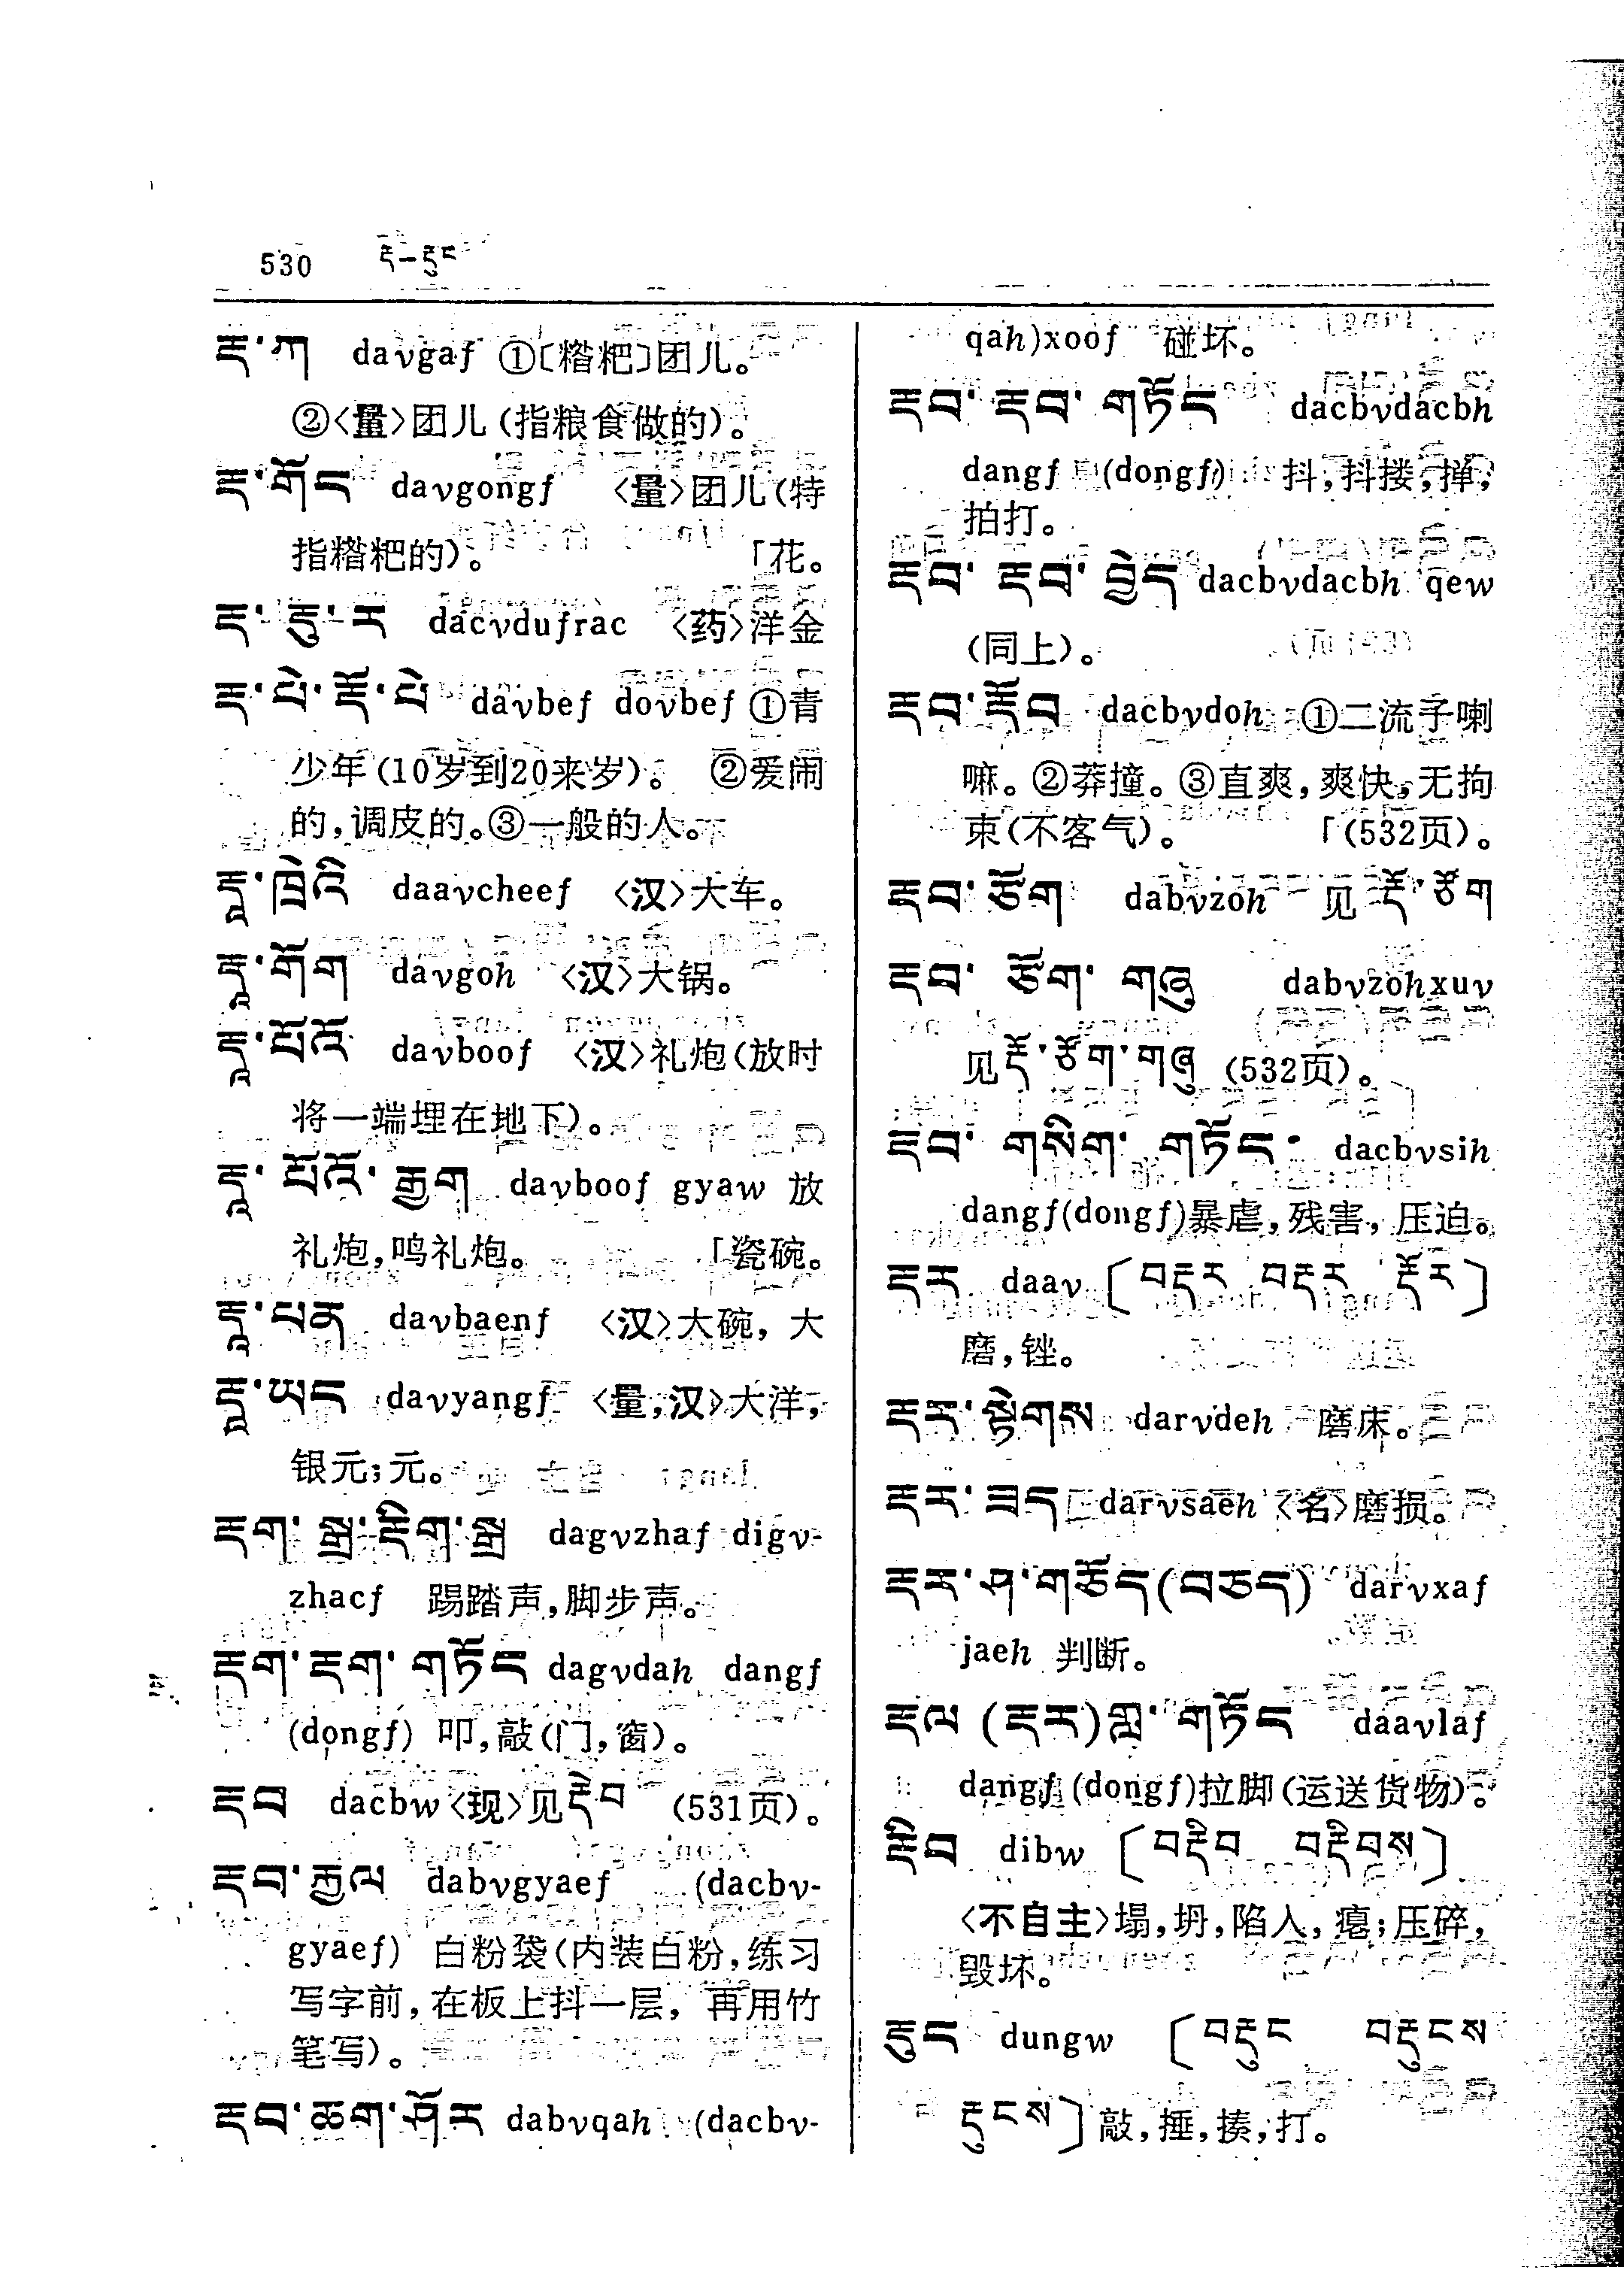 530 རྡ—རྡུང
རྡ་ཀ davgaf ①〔糌粑〕团儿。
②〈量〉团儿(指粮食做的)。
རྡ་གོང davgongf 〈量〉团儿(特
指糌粑的)。 「花。
རྡ་རྡུ་ར dacvdufrac 〈药〉洋金
རྡ་པེ་རྡོ་པེ davbef dovbef ①青
少年(10岁到20来岁)。 ②爱闹
的,调皮的。③一般的人。
རྡཱ་ཁྲེའི daavcheef 〈汉〉大车。
རྡཱ་གོག davgoh 〈汉〉大锅。
རྡཱ་པོའོ davboof 〈汉〉礼炮(放时
将一端埋在地下)。
རྡཱ་པོའོ་རྒྱག davboof gyaw 放
礼炮,鸣礼炮。 「瓷碗。
རྡཱ་པན davbaenf 〈汉〉大碗, 大
རྡཱ་ཡང davyangf 〈量,汉〉大洋,
银元;元。
རྡག་སྒྲ་རྡིག་སྒྲ dagvzhaf digv-
zhacf 踢踏声,脚步声。
རྡག་རྡག་གཏོང dagvdah dangf
(dongf) 叩,敲(门,窗)。
རྡབ dacbw〈现〉见རྡེབ (531页)。
རྡབ་རྒྱལ dabvgyaef (dacbv-
gyaef) 白粉袋(内装白粉,练习
写字前,在板上抖一层, 再用竹
笔写)。
རྡབ་ཆག་ཤོར dabvqah (dacbv-
qah)xoof 碰坏。
རྡབ་རྡབ་གཏོང dacbvdacbh
dangf (dongf) 抖,抖搂,掸,
拍打。
རྡབ་རྡབ་བྱེད dacbvdacbh qew
(同上)。
རྡབ་རྡོབ dacbvdoh ①二流子喇
嘛。②莽撞。③直爽,爽快,无拘
束(不客气)。 「(532页)。
རྡབ་ཙོག dabvzoh 见 རྡོ་ཙོག
རྡབ་ཙོག་གཞུ dabvzohxuv
见རྡོ་ཙོག་གཞུ (532页)。
རྡབ་གསིག་གཏོང dacbvsih
dangf(dongf)暴虐,残害, 压迫。
རྡར daav〔བརྡར བརྡར རྡོར〕
磨,锉。
རྡར་སྟེགས darvdeh 磨床。
རྡར་ཟད darvsaeh 〈名〉磨损。
རྡར་ཤ་གཅོད(བཅད) darvxaf
jaeh 判断。
རྡལ(རྡར)གླ་གཏོང daavlaf
dangf (dongf)拉脚(运送货物)。
རྡིབ dibw 〔བརྡིབ བརྡིབས〕
〈不自主〉塌,坍,陷入, 瘪;压碎,
毁坏。
རྡུང dungw 〔བརྡུང བརྡུངས
རྡུངས〕敲,捶,揍,打。